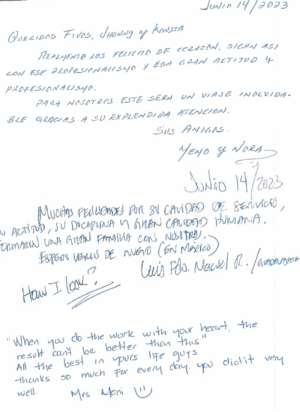 Junio 14/2023
Queridos Fivos, Jhonny y Acosta
Realmente los felicito de corazón, sigan así
con ese profesionalismo y esa gran actitud y
profesionalismo.
Para nosotros este será un viaje inolvida-
ble gracias a su explendida atención.
Sus Amigas.
Yemy y Nora
Junio 14/2023
Muchas felicidades por su calidad de servicio,
actitud, su disciplina y gran calidad humana.
Formaron una gran familia con nosotros.
Espero verlos de nuevo (en México)
Luis
How I look?
"When you do the work with your heart, the
result can't be better than this"
All the best in yours life guys
thanks so much for every day you didit very
well. Mrs Mari